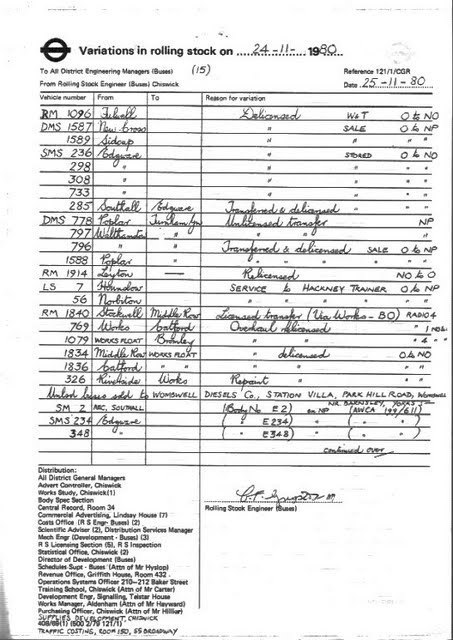 Variations in rolling stock on 24-11- 1980
To All District Engineering Managers (Buses) (15) Reference 121/1/CGR
From Rolling Stock Engineer (Buses) Chiswick Date 25-11-80
Vehicle number From To Reason for variation
RM 1096 Fulwell Delicensed W&T O to NO
DMS 1587 New Cross " SALE O to NP
1589 Sidcup " " " "
SMS 236 Edgware " STORED O to NO
298 " " " " "
308 " " " " "
733 " " " " "
285 Southall Edgware Transferred & delicensed " " "
DMS 778 Poplar Turnham Gn Unlicensed transfer NP
797 Walthamstow " " " "
796 " " Transferred & delicensed SALE O to NP
1588 Poplar " " " " "
RM 1914 Leyton — Relicensed NO to O
LS 7 Hounslow SERVICE to HACKNEY TRAINER O to NP
56 Norbiton " " " " "
RM 1840 Stockwell Middle Row Licensed transfer (Via Works - BO) RADIO4
769 Works Catford Overhaul delicensed " 1
1079 WORKS FLOAT Bromley " " " 4 "
1834 Middle Row WORKS FLOAT " delicensed O to NO
1836 Catford " " " "
326 Riverside Works Repaint " "
Unlicd buses sold to WOMBWELL DIESELS Co., STATION VILLA, PARK HILL ROAD, WOMBWELL
NR. BARNSLEY, YORKS
SM 2 AEC, SOUTHALL (Body No E2) on NP (AWCA 199/611)
SMS 234 Edgware ( " E234) " ( " " )
348 " ( " E348) " ( " " )
continued over
Distribution:
All District General Managers
Advert Controller, Chiswick
Works Study, Chiswick(1)
Body Spec Section
Central Record, Room 34
Commercial Advertising, Lindsay House (7)
Costs Office (R S Engr- Buses) (2)
Scientific Adviser (2), Distribution Services Manager
Mech Engr (Development - Buses) (3)
R S Licensing Section (5), R S Inspection
Statistical Office, Chiswick (2)
Director of Development (Buses)
Schedules Supt - Buses (Attn of Mr Hyslop)
Revenue Office, Griffith House, Room 432
Operations Systems Officer 210-212 Baker Street
Training School, Chiswick (Attn of Mr Carter)
Development Engr, Signalling, Telstar House
Works Manager, Aldenham (Attn of Mr Hayward)
Purchasing Officer, Chiswick (Attn of Mr Hillier)
SUPPLIES DEVELOPMENT, CHISWICK
408/69(1) (500 2/79 121/1)
TRAFFIC COSTING, ROOM 150, 55 BROADWAY
Rolling Stock Engineer (Buses)